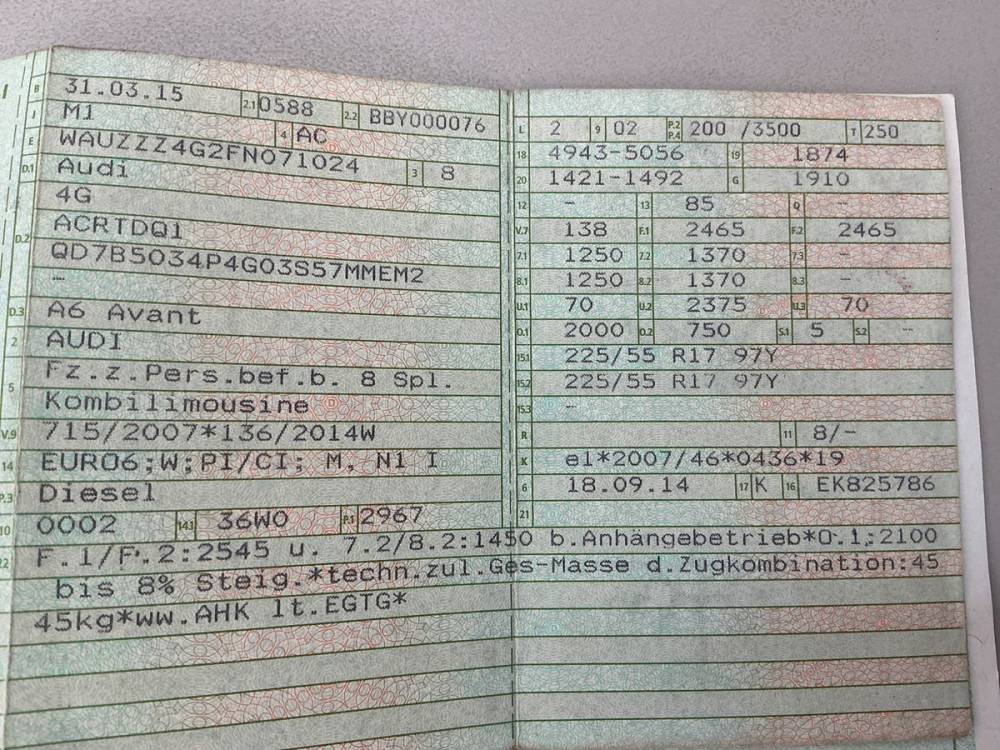 B 31.03.15 2.1 0588 2.2 BBY000076
J M1 4 AC
E WAUZZZ4G2FN071024 3 8
D.1 Audi
4G
D.2 ACRTDQ1
QD7B5034P4G03S57MMEM2
—
D.3 A6 Avant
2 AUDI
5 Fz.z.Pers.bef.b. 8 Spl.
Kombilimousine
V.9 715/2007*136/2014W
14 EURO6;W;PI/CI; M, N1 I
P.3 Diesel
10 0002 14.1 36W0 P.1 2967
L 2 9 02 P.2 P.4 200 /3500 T 250
18 4943-5056 19 1874
20 1421-1492 G 1910
12 — 13 85 Q —
V.7 138 F.1 2465 F.2 2465
7.1 1250 7.2 1370 7.3 —
8.1 1250 8.2 1370 8.3 —
U.1 70 U.2 2375 U.3 70
O.1 2000 O.2 750 S.1 5 S.2 —
15.1 225/55 R17 97Y
15.2 225/55 R17 97Y
15.3 —
R 11 8/-
K e1*2007/46*0436*19
6 18.09.14 17 K 16 EK825786
21
22 F.1/F.2:2545 u. 7.2/8.2:1450 b.Anhängebetrieb*O.1:2100
bis 8% Steig.*techn.zul.Ges-Masse d.Zugkombination:45
45kg*ww.AHK lt.EGTG*